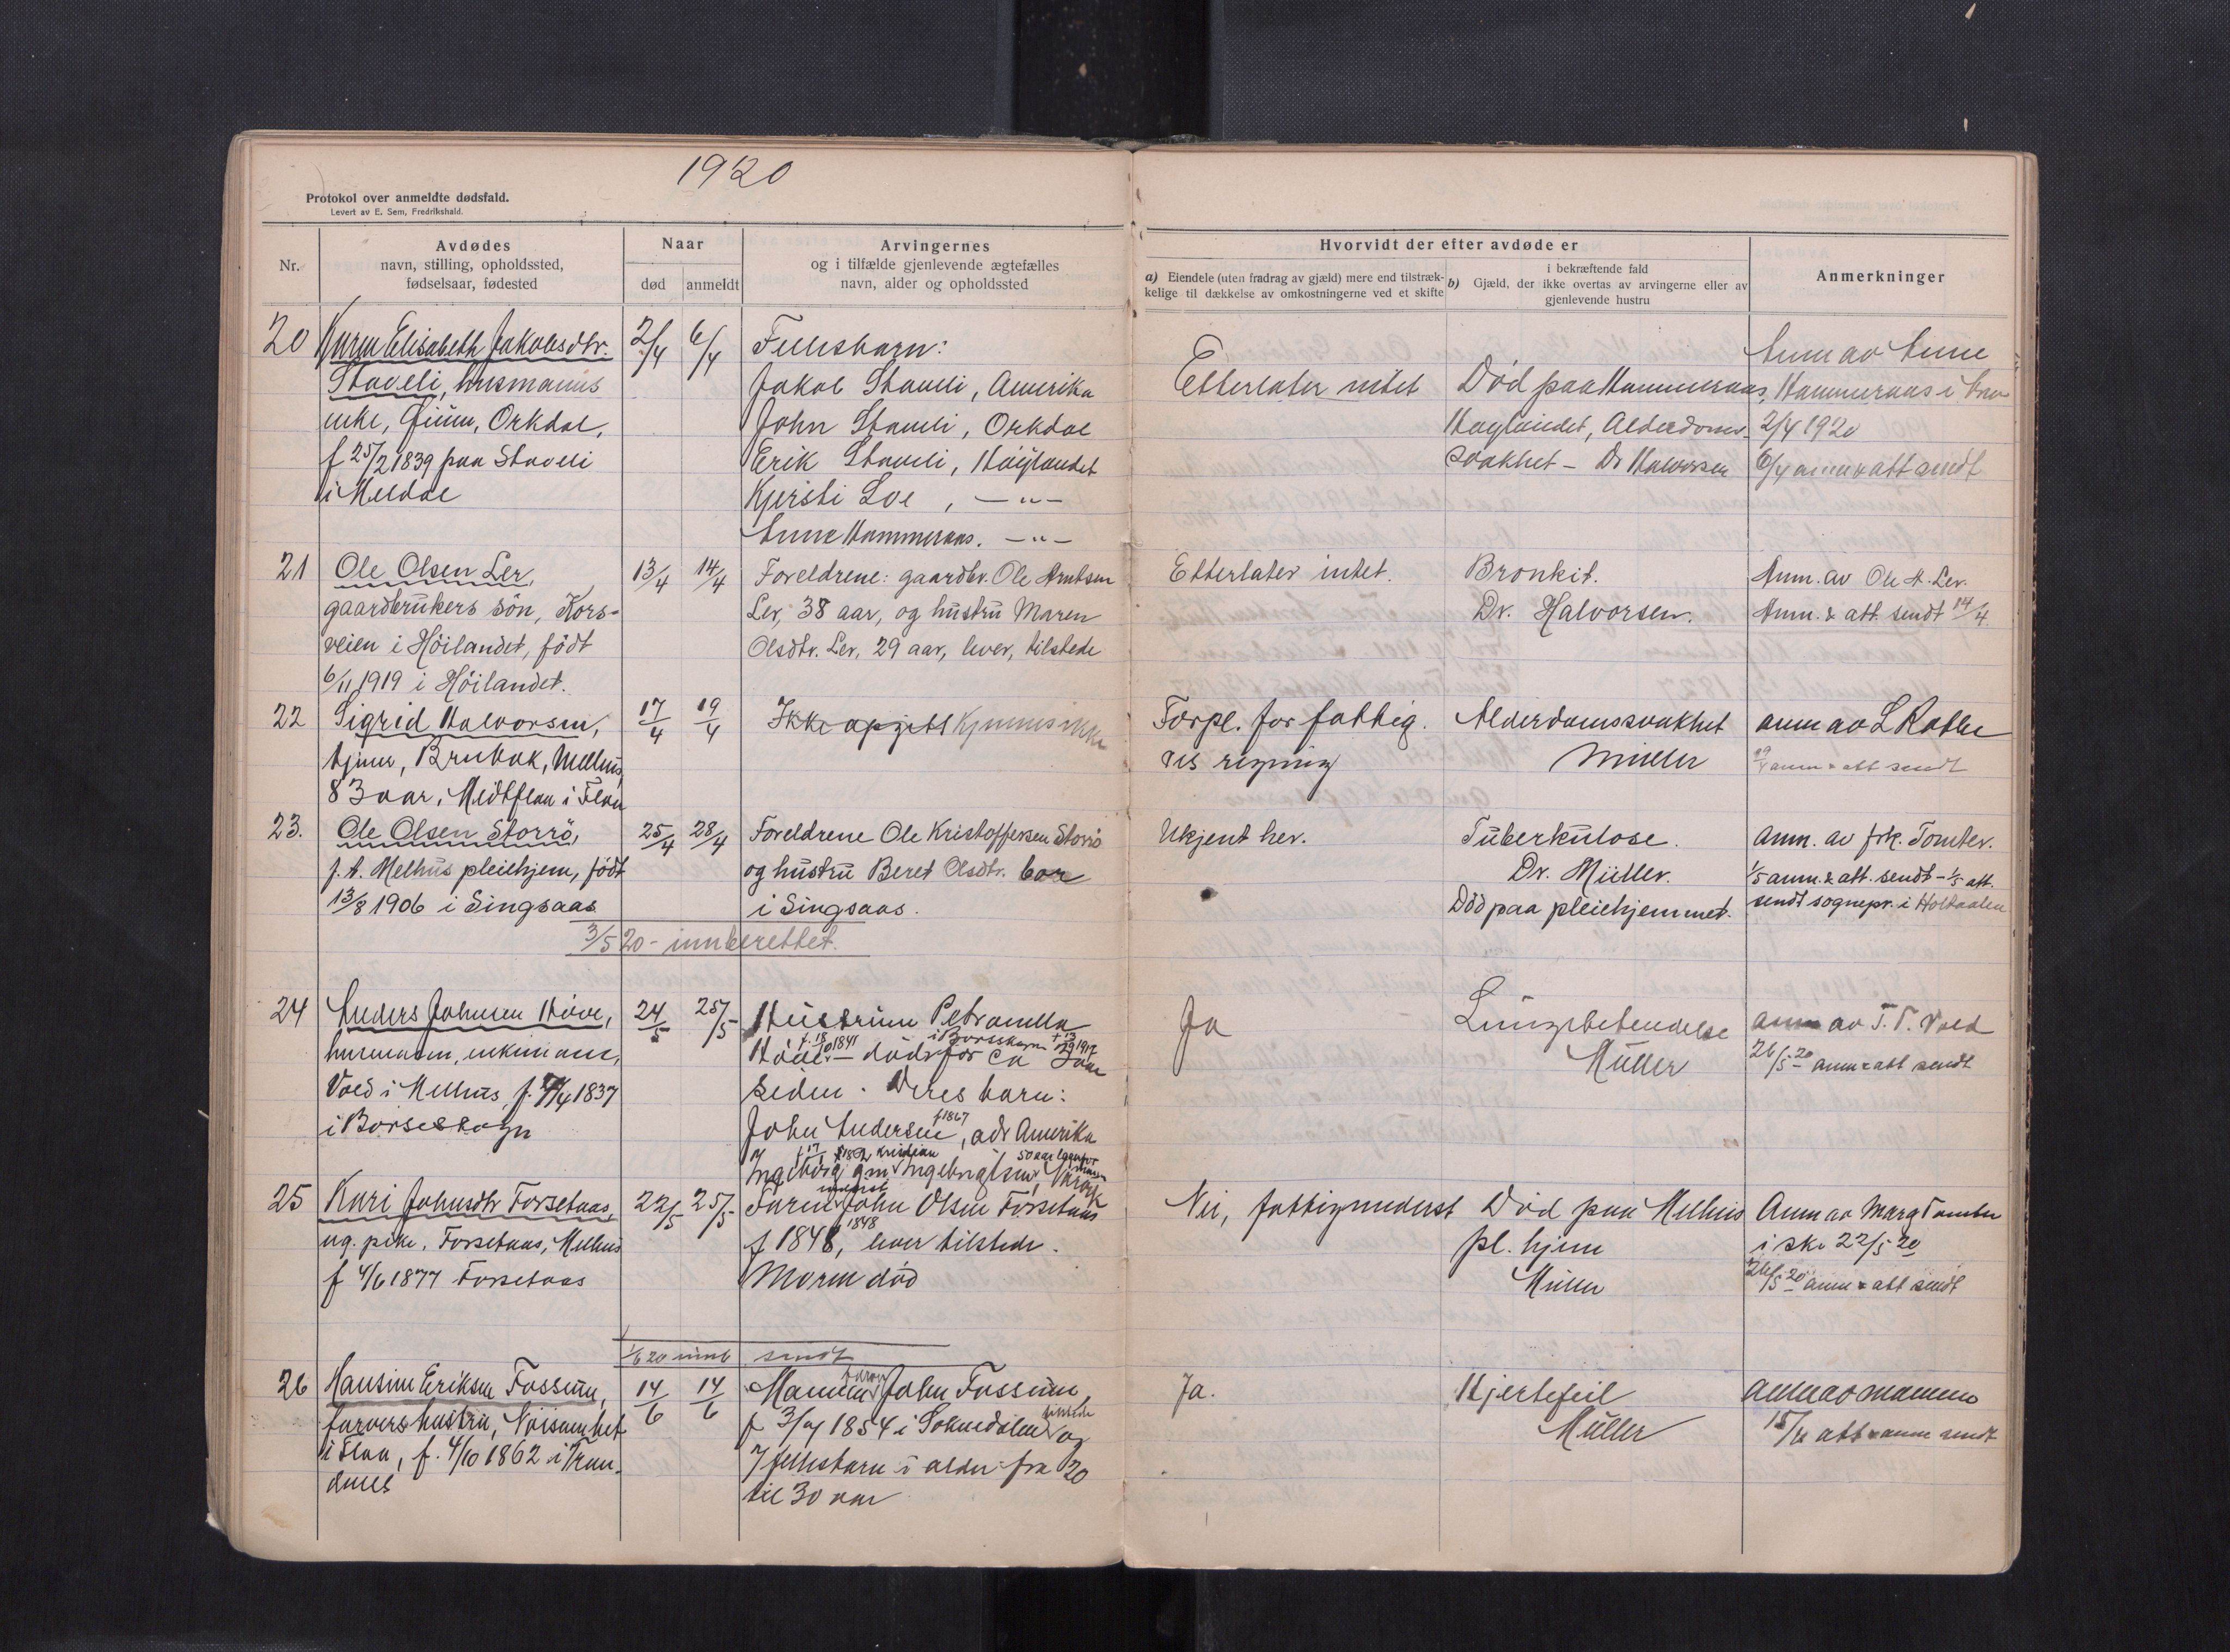 1920
Protokol over anmeldte dødsfald.
Levert av E. Sem, Fredrikshald.
Nr.
Avdødes
navn, stilling, opholdssted,
fødselsaar, fødested
Naar
død anmeldt
Arvingernes
og i tilfælde gjenlevende ægtefælles
navn, alder og opholdssted
Hvorvidt der efter avdøde er
a) Eiendele (uten fradrag av gjæld) mere end tilstræk-
kelige til dækkelse av omkostningerne ved et skifte
i bekræftende fald
b) Gjæld, der ikke overtas av arvingerne eller av
gjenlevende hustru
Anmerkninger
20 Karen Elisabeth Jakobsdtr.
Staveli, husmanns
enke, Gjinn, Orkdal,
f 25/2 1839 paa Staveli
i Meldal
2/4 6/4
Fellesbarn:
Jakob Staveli, Amerika
John Staveli, Orkdal
Erik Staveli, Høylandet
Kjersti Loe , — „ —
Anne Hammeraas. — „ —
Etterlater intet
Død paa Hammeraas,
Høylandet, Alderdoms-
svakhet - Dr Halvorsen
Anm av Anne
Hammeraas i brev
2/4 1920
6/4 anm & att sendt
21 Ole Olsen Ler,
gaardbrukers sön, Kors-
veien i Höilandet, födt
6/11 1919 i Höilandet.
13/4 14/4
Foreldrene: gaardbr. Ole Arntsen
Ler, 38 aar, og hustru Maren
Olsdtr. Ler, 29 aar, lever, tilstede
Etterlater intet.
Bronkit.
Dr. Halvorsen.
Anm. av Ole A. Ler.
Anm. & att. sendt 14/4.
22 Sigrid Halvorsen,
tjener, Brubak, Melhus,
83 aar, Midtflaa i Flaa
17/4 19/4
Ikke opgitt Kjennes ikke
Forpl. for fattig.
ves regning
Alderdomssvakhet
Müller
anm av L Rathe
19/4 anm & att sendt
23. Ole Olsen Storrö,
f. t. Melhus pleiehjem, födt
13/8 1906 i Singsaas
25/4 28/4
Foreldrene Ole Kristoffersen Storrö
og hustru Beret Olsdtr. bor
i Singsaas.
Ukjent her.
Tuberkulose.
Dr. Müller.
Död paa pleiehjemmet.
Anm. av frk. Tomter.
1/5 anm. & att. sendt - 1/5 att.
sendt sognepr. i Holtaalen
3/5 20 - innberettet.
24 Anders Johnsen Höve,
husmann, enkemann,
Vold i Melhus, f. 7/4 1837
i Börseskogn
24/5 25/5
Hustruen Petronella
Höve — död for ca aar
siden. Deres barn:
John Andersen f 1867, adr Amerika
Ingeborg gm Kristian Ingebrigtsen,
Ja
Lungebetendelse
Müller
anm av T. T. Vold
26/5 20 anm & att sendt
25 Kari Johnsdtr Forsetaas,
ug. pike, Forsetaas, Melhus
f 4/6 1877 Forsetaas
22/5 25/5
Faren John Olsen Forsetaas
f 1848, 1848 lever tilstede.
Moren död
Nei, fattigunderst
Död paa Melhus
pl. hjem
Müller
Anm av Marg Tomter
i skr 22/5 20
26/5 20 anm & att sendt
1/6 20 innb sendt
26 Hansine Eriksen Fossum,
farvers hustru, Nöisomhet
i Flaa, f. 4/10 1862 i Tron-
denes
14/6 14/6
Mannen farver John Fossum,
f 3/ 1854 i Soknedalen tilstede og
7 fellesbarn i alder fra 20
til 30 aar
Ja.
Hjertefeil
Müller
anm av mannen
15/6 att & anm sendt